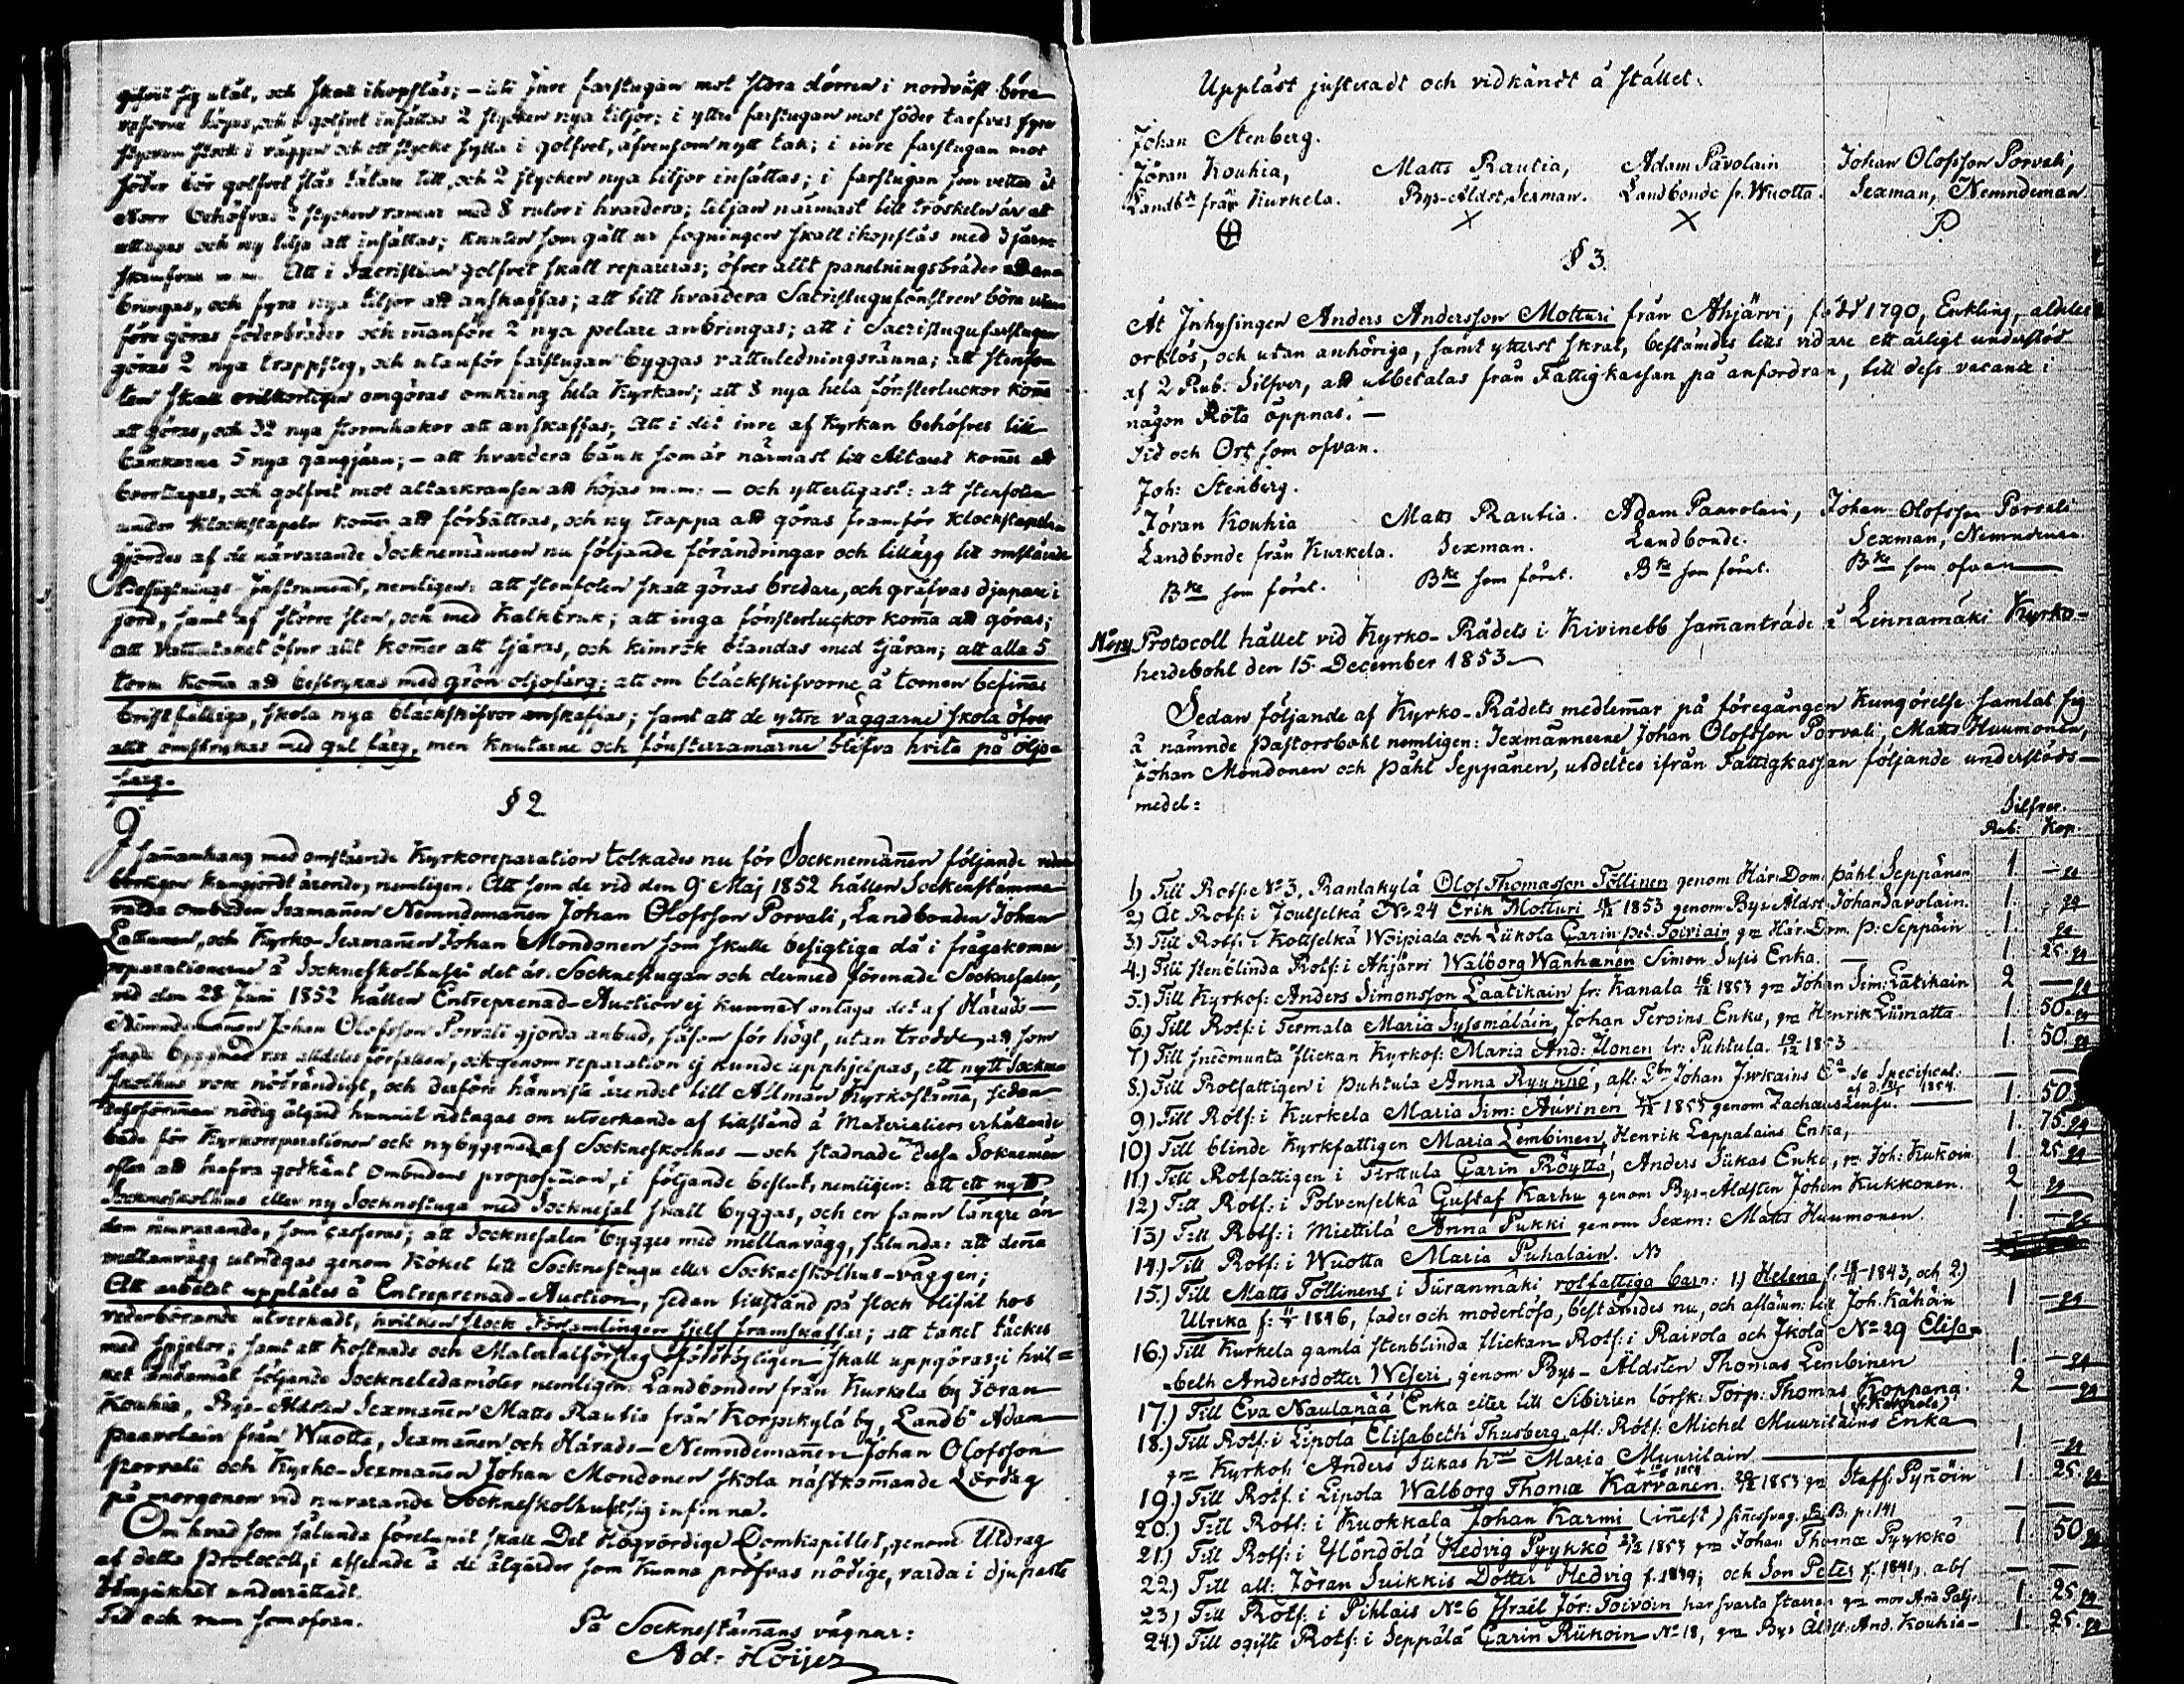 sig utåt, och skall ihopslås; – uti inre farstugan mot stora dörren i nordväst böra
höjas, och i golfvet insättas 2 stycken nya tiljor; i yttre farstugan mot söder tarfvas fyra
stycken stock i väggen och ett stycke sylla i golfvet, äfvensom nytt tak; i inre farstugan mot
söder bör golfvet slås tätare till, och 2 stycken nya tiljor insättas; i farstugan som vetter åt
Norr behöfvas 2 stycken ramar med 8 rutor i hvardera; tiljan närmast till tröskeln är att
uttagas och ny tilja att insättas; knuten som gått ur fogningen skall ihopslås med 3 järn
m.m. Att i Sacristian golfvet skall repareras; öfver allt panelningsbräder att an-
bringas, och fyra nya tiljor att anskaffas; att till hvardera Sacristugufönstren böra utan-
före göras foderbräder och inanföre 2 nya pelare anbringas; att i Sacristugufarstugan
göras 2 nya trappsteg, och utanför farstugan byggas vattuledningsränna; att stenfo-
ten skall ovilkorligen omgöras omkring hela Kyrkan; att 8 nya hela fönsterluckor kom̄a
att göras, och 32 nya stormhakar att anskaffas; Att i det inre af Kyrkan behöfves till
bänkarne 5 nya gångjärn; – att hvardera bänk som är närmast till Altaret kom̄er att
borttagas, och golfvet mot altarkransen att höjas m.m: – och ytterligast: att stenfoten
under Klockstapeln kom̄er att förbättras, och ny trappa att göras framför Klockstapeln
gjordes af de närvarande Socknemännen nu följande förändringar och tillägg till omstående
Besigtnings-Instrument, nemligen: att stenfoten skall göras bredare, och gräfvas djupare i
jord, samt af större sten, och med Kalkbruk; att inga fönsterluckor kom̄a att göras;
att Vattutaket öfver allt kom̄er att tjäras, och kimrök blandas med tjäran; att alla 5
torn kom̄a att bestrykas med grön oljofärg; att om bläckskifvorne å tornen befin̄as
bristfälliga, skola nya bläckskifvor anskaffas; samt att de yttre väggarne skola öfver
allt omstrykas med gul färg, men Knutarne och fönsterramarne blifva hvita på oljo-
färg.
§ 2
I sam̄anhang med omstående Kyrkoreparation tolkades nu för Socknemän̄en följande
kungjordt ärende, nemligen: Att som de vid den 9 Maj 1852 hållen Sockenstäm̄a
valda ombuden Sexman̄en Nemndeman̄en Johan Olofsson Porvali, Landbonden Johan
Lattunen, och Kyrko-Sexman̄en Johan Mondonen som skulle besigtiga då i fråga komne
reparationerne å Sockneskolhuset det är Socknestugan och dermed förenade Socknesalen,
vid den 28 Juni 1852 hållen Entreprenad-Auction ej kunnat antaga det af Härads-
Nemndeman̄en Johan Olofsson Porvali gjorda anbud, såsom för högt, utan trodde, att som
sagde byggnad var alldeles förfallen, och genom reparation ej kunde upphjelpas, ett nytt Sockne-
skolhus vore nödvändigt, och derföre hänviste ärendet till Allmän Kyrkostäm̄a, sedan
nödig åtgärd hunnit vidtagas om utverkande af tillstånd å Materialiers erhållande
både för Kyrkoreparationen och nybyggnad af Sockneskolhus – och stadnade dessa Soknemän
efter att hafva godkänt Ombudens proposition, i följande beslut, nemligen: att ett nytt
Sockneskolhus eller ny Socknestuga med Socknesal skall byggas, och en famn längre än
den nuvarande, som casseras; att Socknesalen bygges med mellanvägg, sålunda: att denna
mellanvägg utvidgas genom Köket till Socknestugu eller Sockneskolhus-väggen;
Att arbetet upplåtes å Entreprenad-Auction, sedan tillstånd på stock blifvit hos
vederbörande utverkadt, hvilken stock Församlingen sjelf framskaffar; att taket täckes
med spjelor; samt att Kostnads och Materialförslag skall uppgöras; i hvil-
ket ändamål följande Sockneledamöter nemligen: Landbonden från Kurkela by Jöran
Kouhia, Bys-Åldsten Sexman̄en Matts Rautia från Korpikylä by, Landb Adam
Paavolain från Wuotta, Sexman̄en och Härads-Nemndeman̄en Johan Olofsson
Porvali och Kyrko-Sexman̄en Johan Mondonen skola nästkom̄ande Lördag
på morgonen vid nuvarande Sockneskolhus sig infinna.
Om hvad som sålunda förelupit skall Det Högvördige Domkapitlet, genom Utdrag
af detta Protocoll, i afseende å de åtgärder som kunna pröfvas nödige, varda i djupaste
ödmjukhet underrättadt.
Tid och rum som ofvan.
På Socknestäm̄ans vägnar:
Ad: Höijer
Uppläst justeradt och vidkändt å stället:
Johan Stenberg.
Jöran Kouhia, Matts Rautia, Adam Pavolain Johan Olofsson Porvali,
Landbde från Kurkela. Bys-Åldst, Sexman. Landbonde fr. Wuotta. Sexman, Nemndeman
X X P
§ 3.
Åt Inhysingen Anders Andersson Motturi från Ahjärvi, född 1790, Enkling, aldeles
orklös, och utan anhöriga, samt ytterst skral, bestämdes tills vidare ett årligt understöd
af 2 Rub: Silfver, att utbetalas från Fattigkassan på anfordran, till dess vacance i
någon Rota öppnas. –
Tid och Ort som ofvan.
Joh: Stenberg.
Jöran Kouhia Matts Rautia. Adam Paavolain, Johan Olofsson Porvali
Landbonde från Kurkela. Sexman. Landbonde. Sexman, Nemndeman.
Bke som föret. Bke som föret. Bke som föret. Bke som ofvan
Protocoll hållet vid Kyrko-Rådets i Kivinebb sam̄anträde å Linnamäki Kyrko-
herdebohl den 15. December 1853
Sedan följande af Kyrko-Rådets medlem̄ar på föregången Kungörelse samlat sig
å nämnde Pastorsbohl nemligen: Sexmännerne Johan Olofsson Porvali, Matts Huumonen,
Johan Mondonen och Påhl Seppänen, utdeltes ifrån Fattigkassan följande understöds-
medel:
Silfver.
Rub: Kop.
1) Till Rotf: No 3. Rantakylä Olof Thomasson Töllinen genom Här: Dom: Påhl Seppänen 1. —
2) Åt Rotf: i Joutselkä No 24 Erik Motturi 1853 genom Bys Åldst Johan Savolain. 1.
3) Till Rotf: i Kottselkä Woipiala och Liikola Carin Pet: Toiviain gm Här. Dom. P: Seppäin 1.
4.) Till stenblinda Rotf: i Ahjärvi Walborg Wanhanen Simon Susis Enka. 1. 25.
5.) Till Kyrkof: Anders Simonsson Laatikain fr: Kanala 1853 gm Johan Sim: Lätikain 2 —
6) Till Rotf: i Termala Maria Syssmäläin, Johan Tervins Enka, gm Henrik Liimatta 1. 50.
7) Till flickan Kyrkof: Maria And: Ilonen fr: Puhtula. 19/12 1853 1. 50.
8.) Till Rotfattigen i Puhtula Anna Ryynnö, afl: Johan se Specificat: — —
9.) Till Rotf: i Kurkela Maria Sim: Auvinen 1853 genom Zachaus 1. 50
10) Till blinde Kyrkfattigen Maria Lembinen, Henrik Lappalains Enka, 1. 75
11.) Till Rotfattigen i Tirttula Carin Röyttä, Anders Siikas Enka, gm Joh: Kukoin 1. 25
12.) Till Rotf: i Polvenselkä Gustaf Karhu genom Bys-Åldsten Johan Kukkonen. 2
13.) Till Rotf: i Miettilä Anna Pukki genom Sexm: Matts Huumonen. 1. —
14.) Till Rotf: i Wuotta Maria Puhalain.
15.) Till Matts Töllinens i Siiranmäki rotfattiga barn: 1) Helena f: 1843, och 2)
Ulrika f: 1846, fader och moderlösa, bestämdes nu, och aflämn: till Joh. Kähöin 1 —
16.) Till Kurkela gamla stenblinda flickan Rotf: i Raivola och Ikola No 29 Elisa-
beth Andersdotter Weseri genom Bys-Åldsten Thomas Lembinen 1. —
17.) Till Eva Naulanää Enka efter till Sibirien försk: Torp: Thomas Koppana. 2 —
18.) Till Rotf: i Lipola Elisabeth Thusberg, afl: Rotf: Michel Muurilains Enka
gm Kyrkof: Anders Siikas Maria Muurilain 1. —
19.) Till Rotf: i Lipola Walborg Thomæ Karvanen. 1853 gm Staff: Pynöin 1. 25.
20.) Till Rotf: i Kuokkala Johan Karmi p. 141 — —
21.) Till Rotf: i Ylöndölä Hedvig Pyykkö 1853 gm Johan Thomæ Pyykkö 1. 50
22.) Till afl: Jöran Suikkis Dotter Hedvig f. 1839; och Son Peter f. 1841, —
23) Till Rotf: i Pihlais No 6 Israel Jör: Toivoin har svarta starren gm mor Ana 1. 25
24.) Till ogifte Rotf: i Seppälä Carin Riikoin No 18, gm Bys Åldst: And. Kouhia 1. 25.